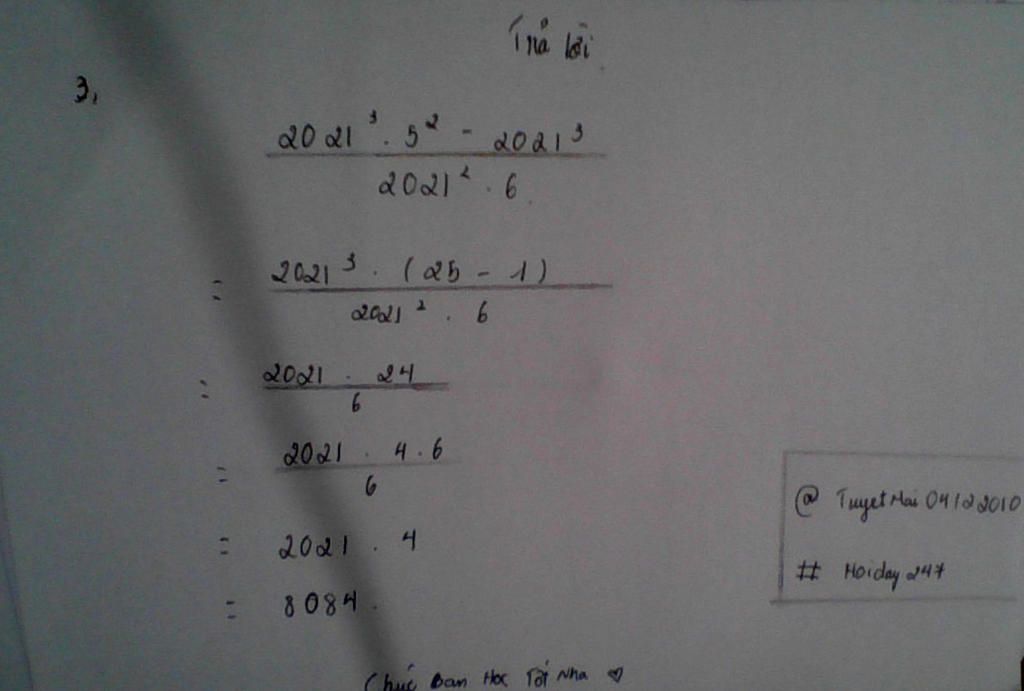 Trả lời
3,
2021³ . 5² - 2021³
2021² . 6
= 2021³ . (25 - 1)
2021² . 6
= 2021 . 24
6
= 2021 . 4 . 6
6
= 2021 . 4
= 8084.
@ TuyetMai 04122010
# Hoiday 247
Chúc Bạn Học Tốt Nha ♡